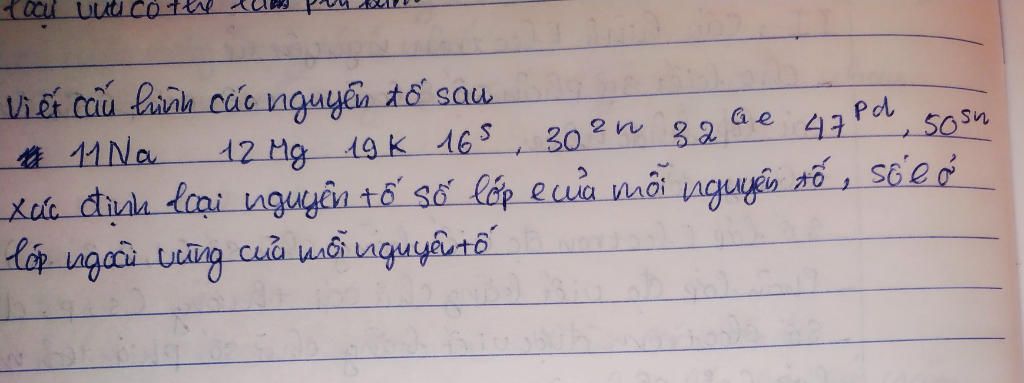 Viết cấu hình các nguyên tố sau
11Na 12Mg 19K 16S, 30Zn 32Ge 47Pd, 50Sn
xác định loại nguyên tố số lớp e của mỗi nguyên tố, số e ở
lớp ngoài cùng của mỗi nguyên tố